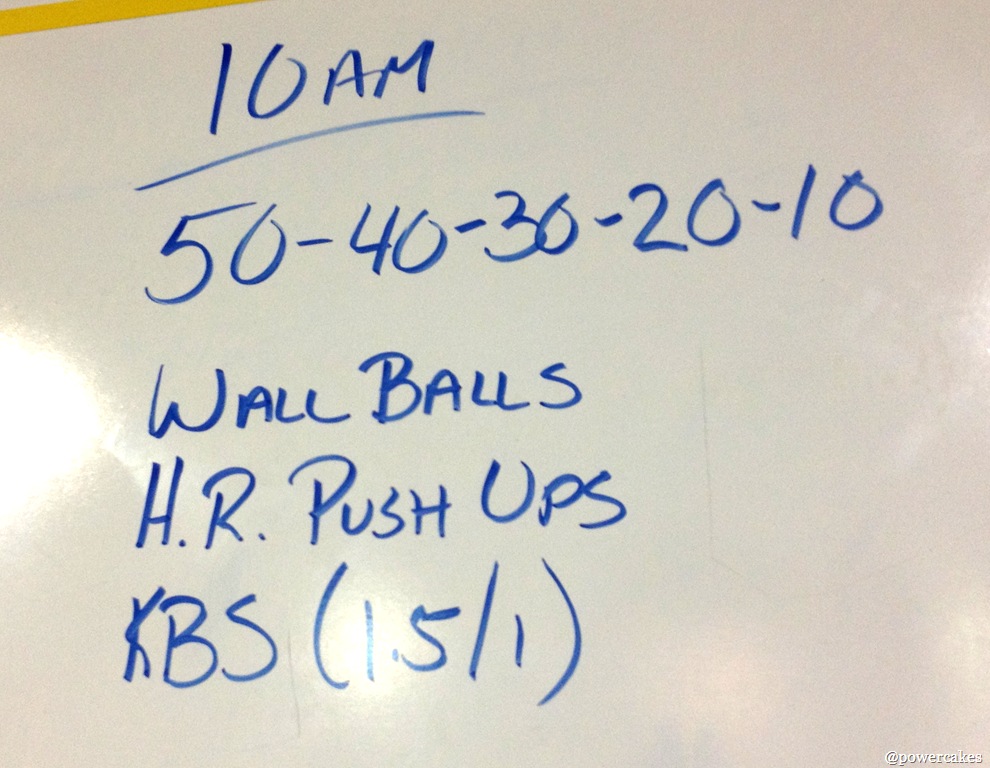 10 AM
50-40-30-20-10
WALL BALLS
H.R. PUSH UPS
KBS (1.5/1)
@powercakes